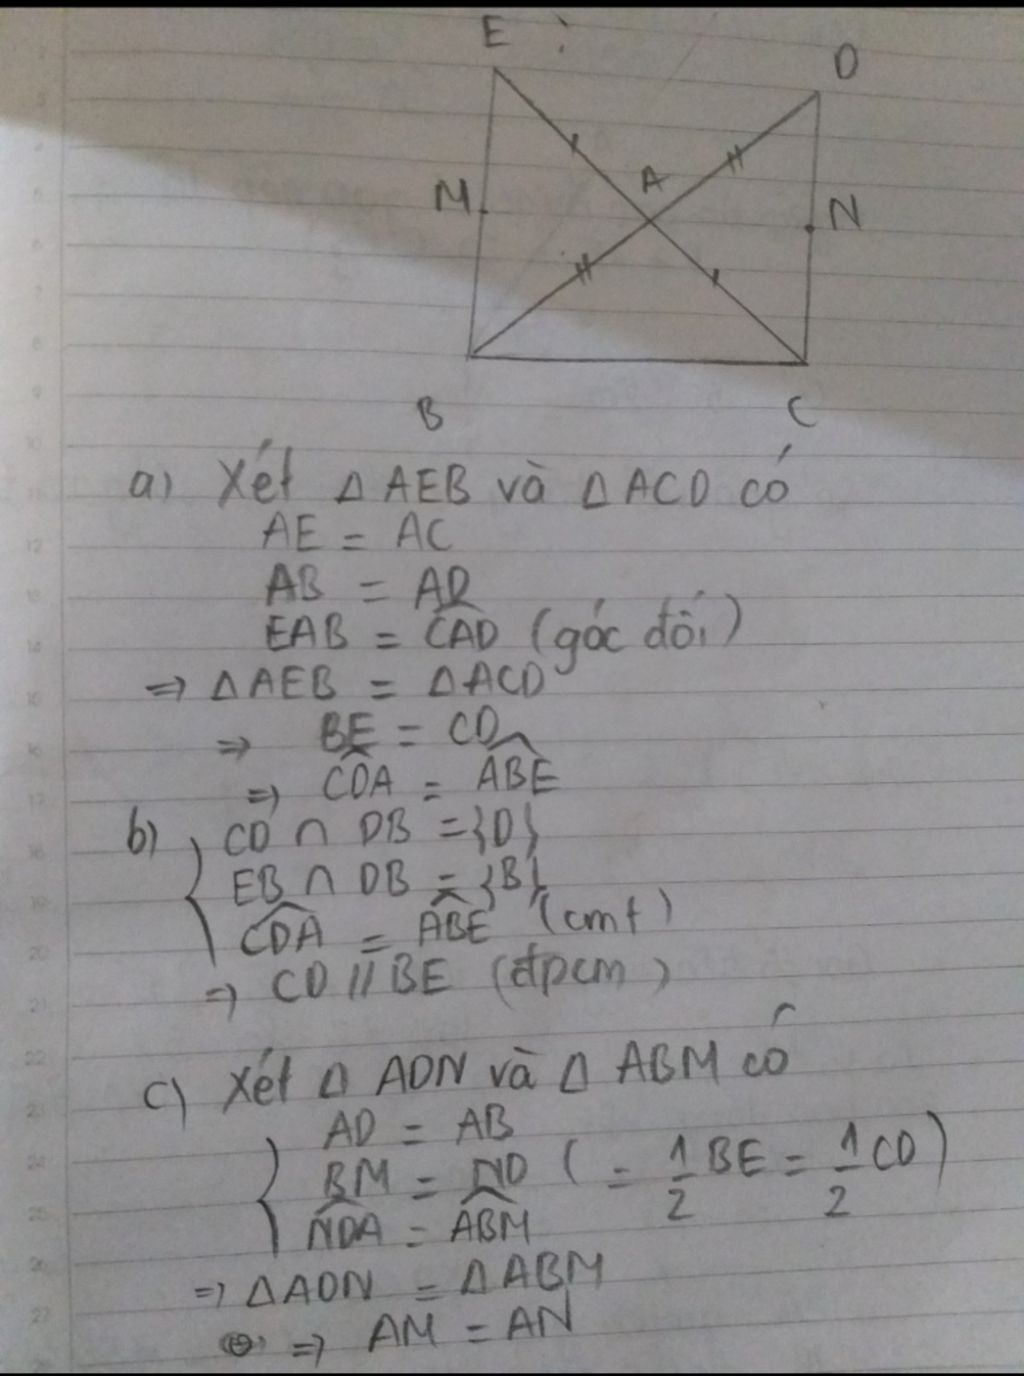 E
D
M
A
N
B
C
a) Xét Δ AEB và Δ ACD có
AE = AC
AB = AD
EAB = CAD (góc đối)
=> Δ AEB = Δ ACD
=> BE = CD
=> CDA = ABE
b) CD ∩ DB = {D}
EB ∩ DB = {B}
CDA = ABE (cmt)
=> CD // BE (đpcm)
c) Xét Δ ADN và Δ ABM có
AD = AB
BM = ND ( = 1/2 BE = 1/2 CD )
NDA = ABM
=> Δ ADN = Δ ABM
=> AM = AN